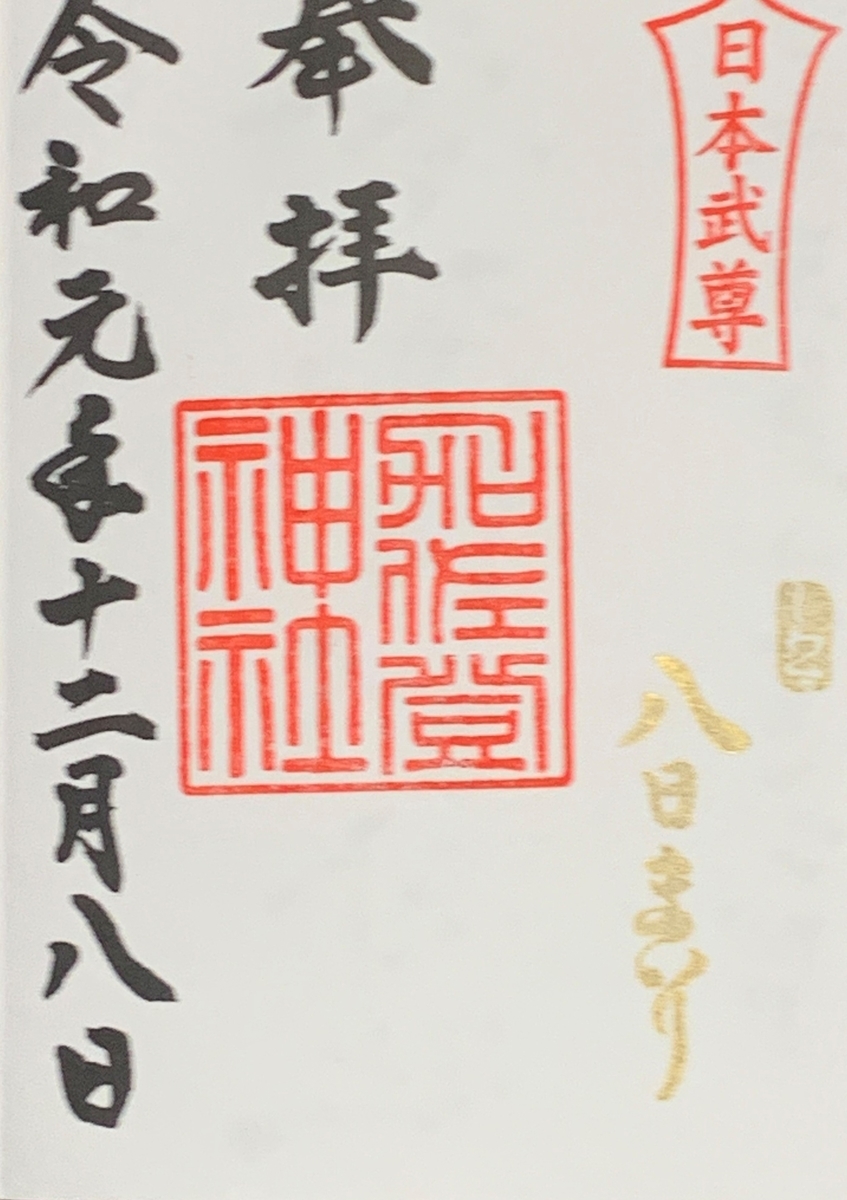 日本武尊
八日まいり
奉拝
加佐登
神社
令和元年十二月八日